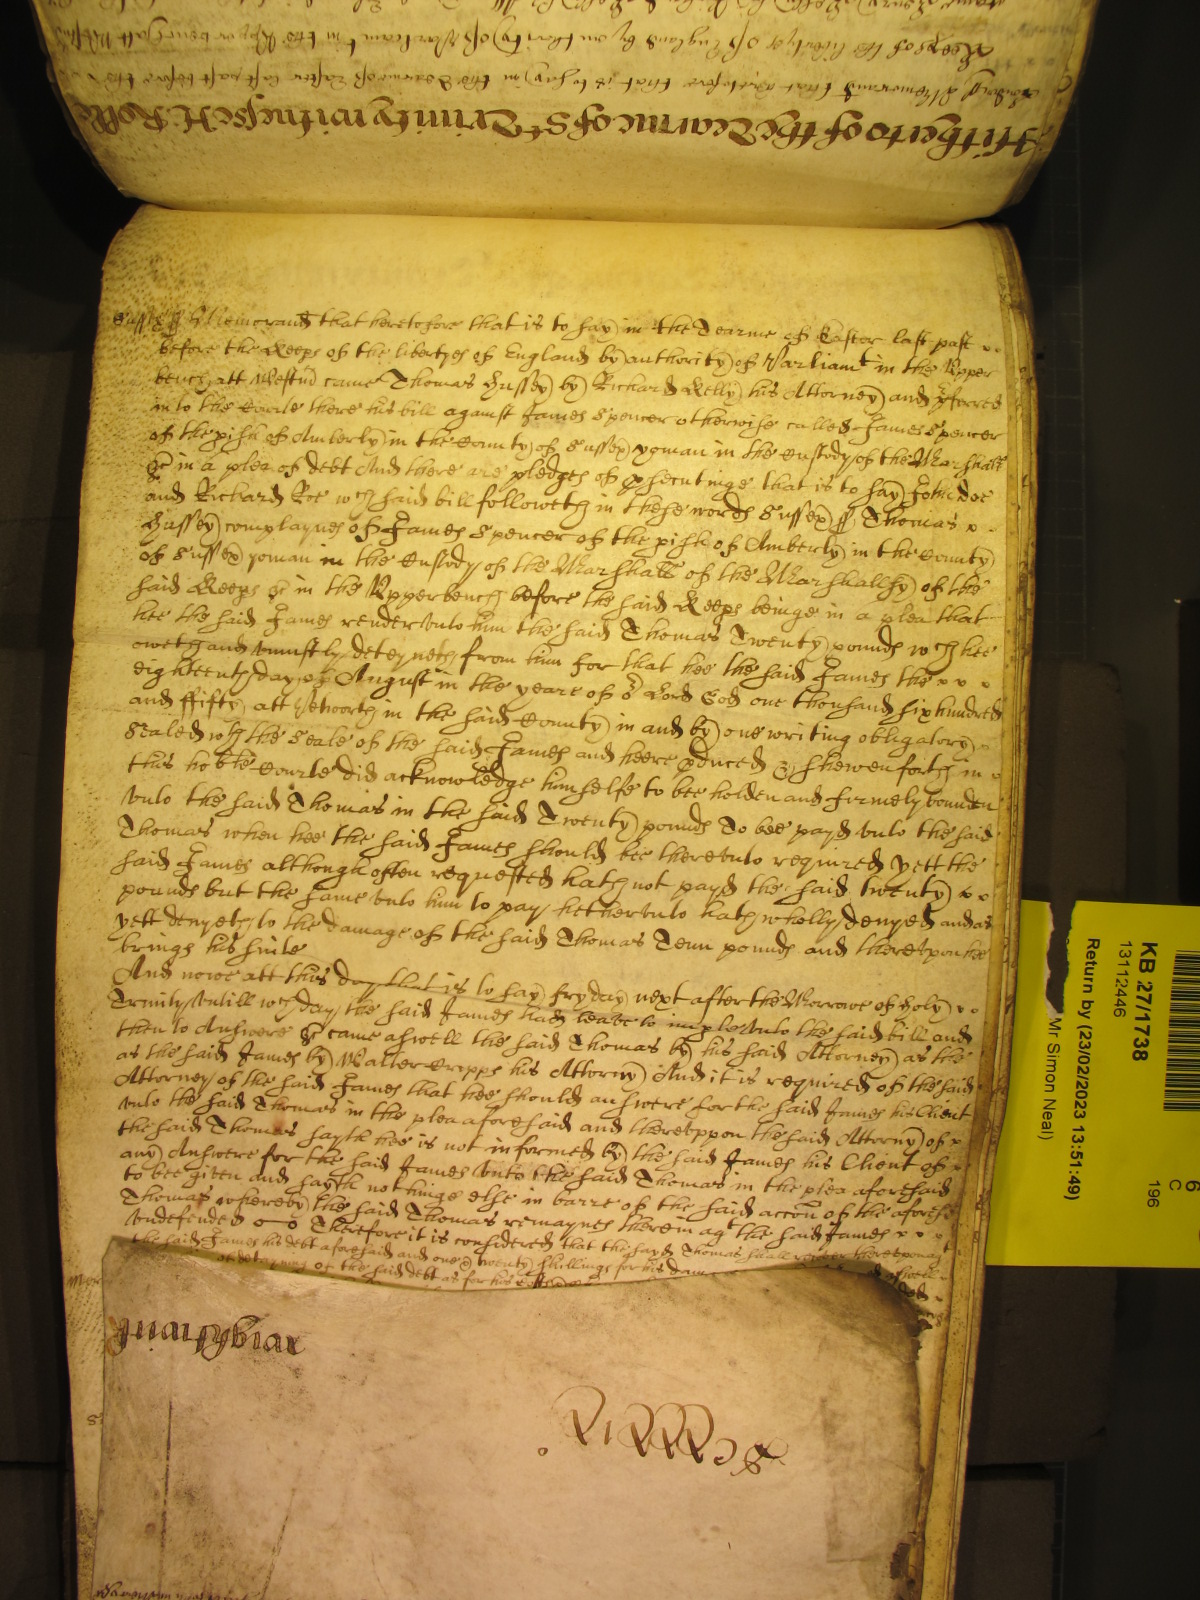 Hitherto of the Tearme of St Trinity witnesse H: Rolle
Memorand that heretofore that is to say in the Tearme of Easter last past before the
Keeps of the libertyes of England by authority of Parliamt in the Upper bench att Westmr
Sussex ss Memorand that heretofore that is to say in the Tearme of Easter last past
before the Keeps of the libertyes of England by authority of Parliamt in the Upper
bench att Westmr came Thomas Hussey by Richard Kelly his Attorney and pferred
into the Courte there his bill against James Spencer otherwise called James Spencer
of the pish of Amberly in the County of Sussex yoman in the Custody of the Marshall
&c in a plea of debt And there are pledges of psecutinge that is to say John Doe
and Richard Roe wch said bill followeth in these words Sussex ss Thomas
Hussey complaynes of James Spencer of the pish of Amberly in the County
of Sussex yoman in the Custody of the Marshall of the Marshallsy of the
said Keeps &c in the Upperbench before the said Keeps beinge in a plea that
hee the said James render unto him the said Thomas Twenty pounds wch hee
oweth and uniustly deteyneth from him for that hee the said James the
eighteenth day of August in the yeare of or Lord God one thousand six hundred
and ffifty att Petworth in the said County in and by one writing obligatory
Sealed wth the Seale of the said James and heere pduced & shewen forth in
this hoble Courte did acknowledge himselfe to bee holden and firmely bounden
unto the said Thomas in the said Twenty pounds To bee payd unto the said
Thomas when hee the said James should bee thereunto required Yett the
said James although often requested hath not payd the said twenty
pounds but the same unto him to pay hetherunto hath wholly denyed and as
yett denyeth to the damage of the said Thomas Tenn pounds and thereupon hee
brings his suite
And nowe att this day that is to say fryday next after the Morrowe of holy
Trinity Untill wch day the said James hadd leave to imple unto the said bill and
then to Answere &c came aswell the said Thomas by his said Attorney as the
as the said James by Walter Cripps his Attorny And it is required of the said
Attorney of the said James that hee should answere for the said James his Client
unto the said Thomas in the plea aforesaid and thereuppon the said Attorny of
the said Thomas sayth hee is not informed by the said James his Client of
any Answere for the said James unto the said Thomas in the plea aforesaid
to bee given and sayth nothinge else in barre of the said accon of the aforesd
Thomas whereby the said Thomas remaynes therein agt the said James
undefended Therefore it is considered that the sayd Thomas shall recover thereupon agt
the said James his debt aforesaid and one & twenty shillings for his dam
of deteyning of the said debt as for his Costs aswell
KB 27/1738
13112446
Return by (23/02/2023 13:51:49)
Mr Simon Neal)
196
C
6